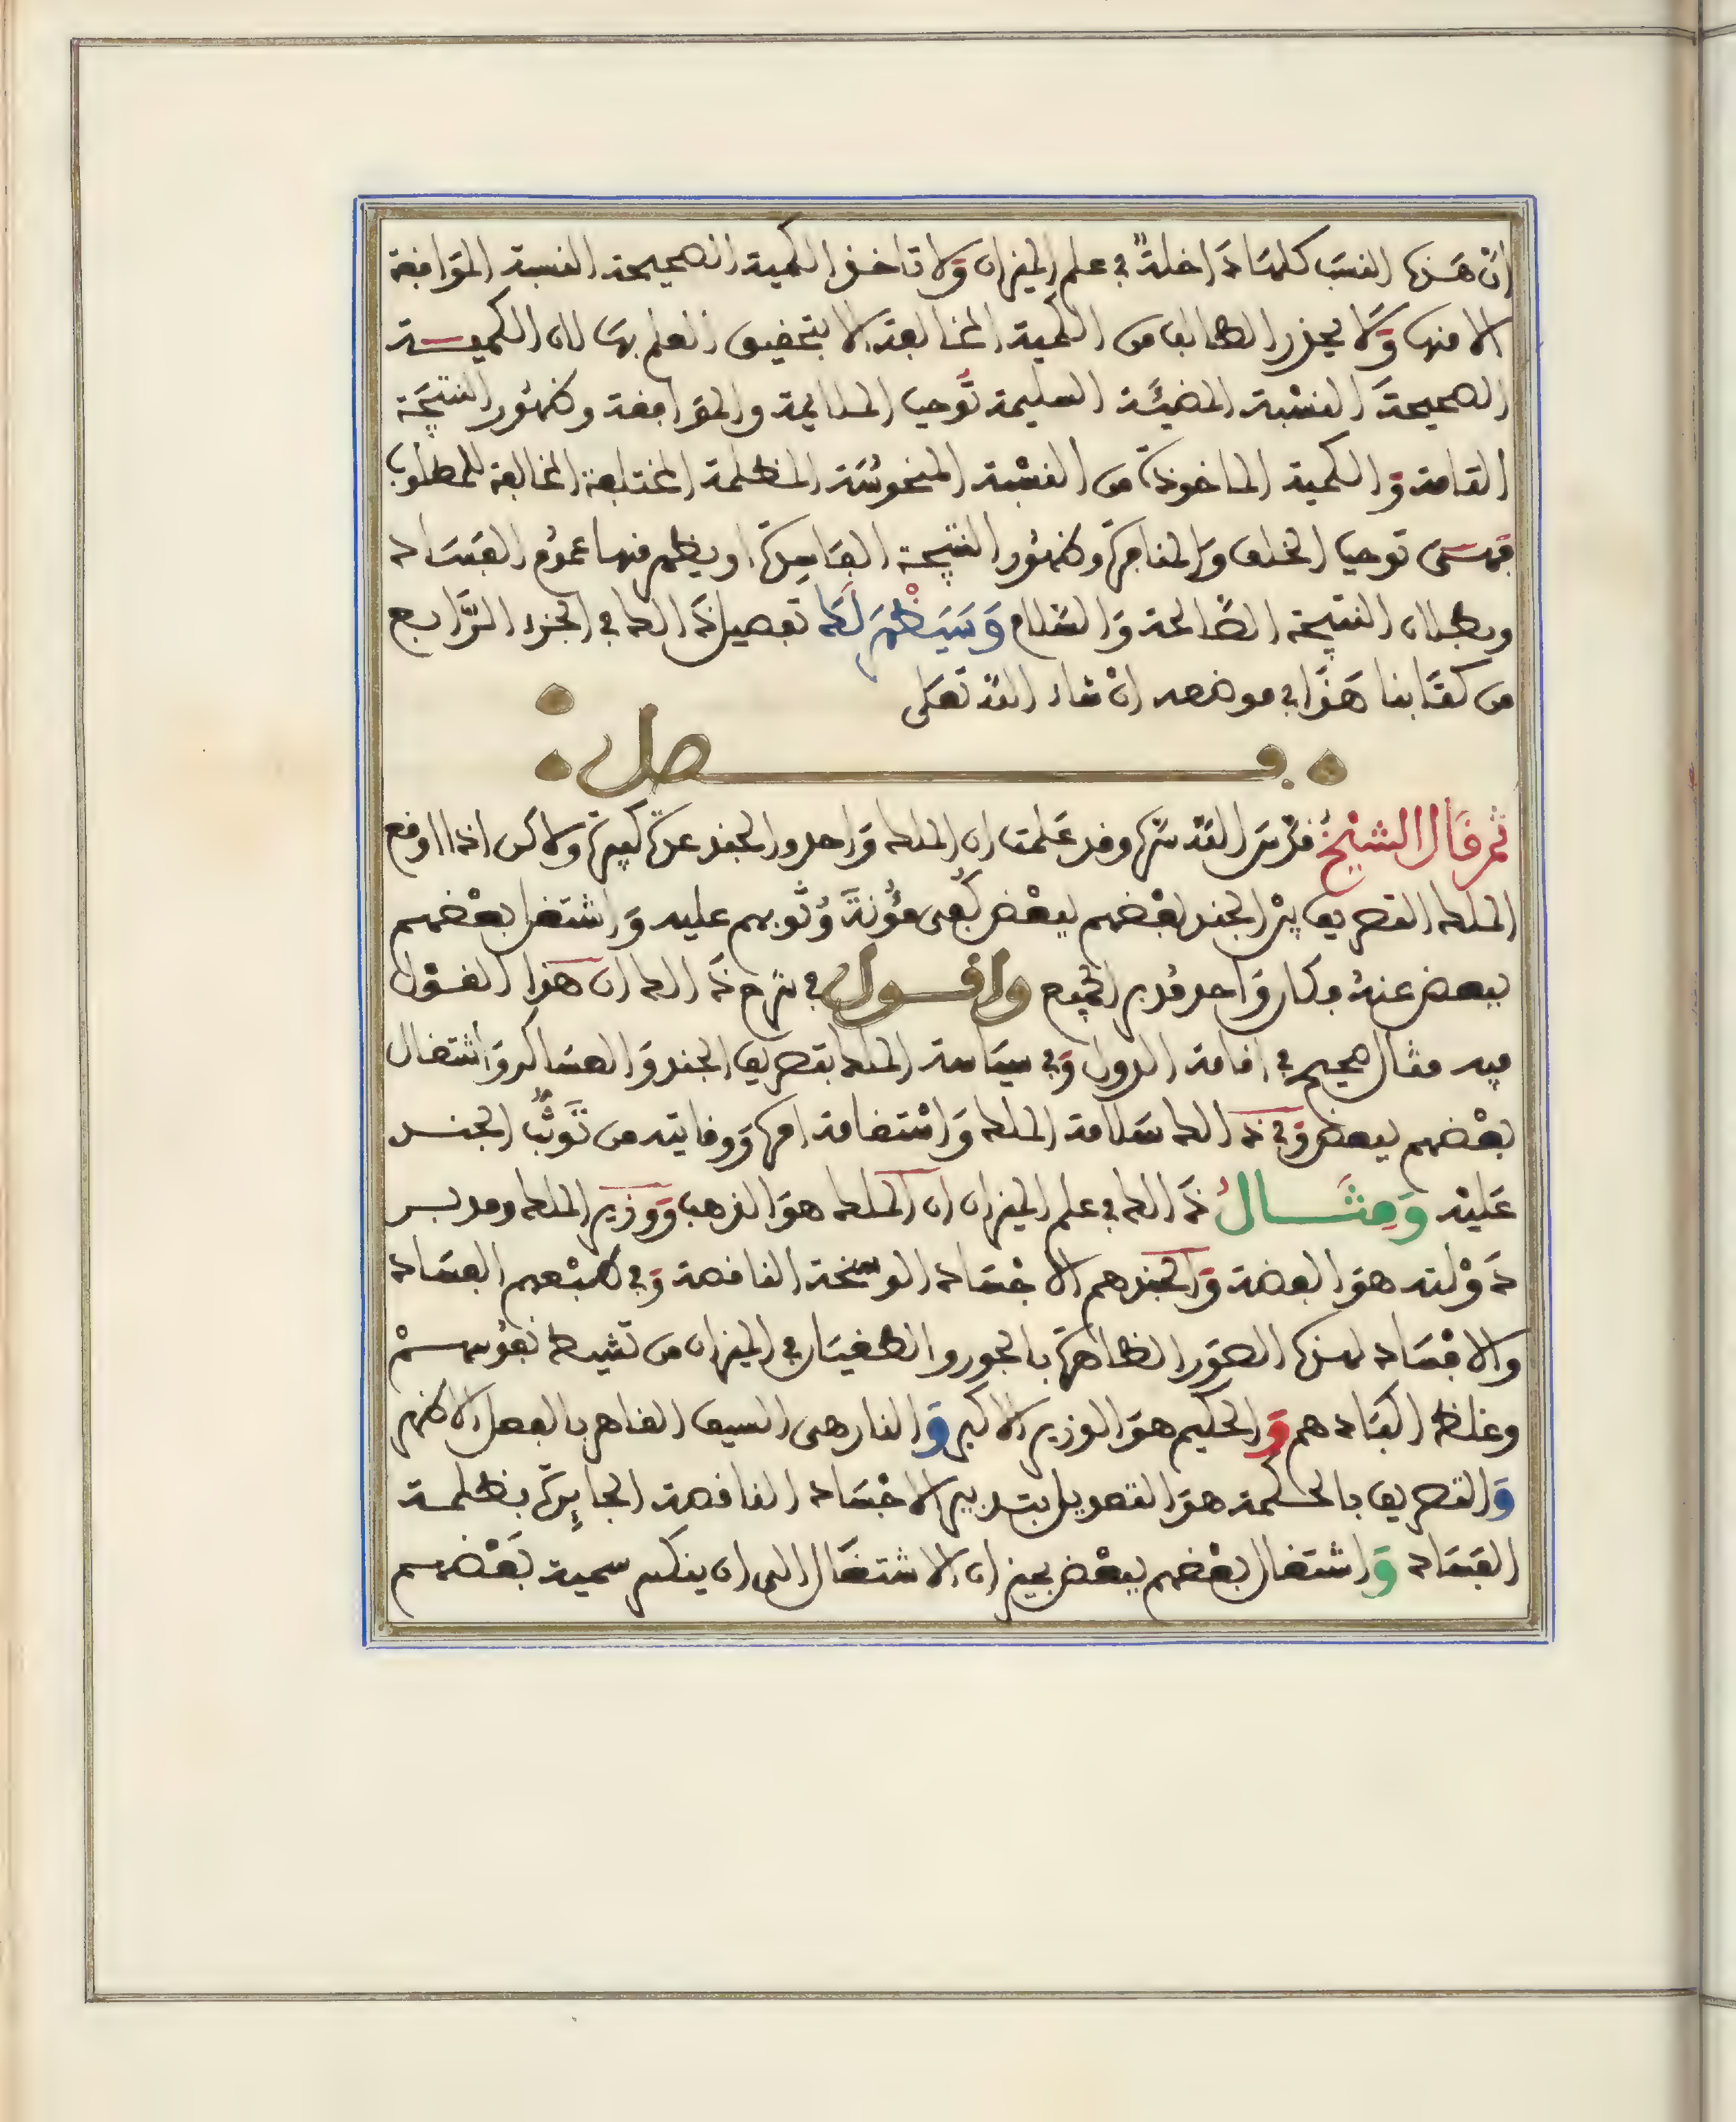 ان هذه النسب كلها داخلة في علم الميزان ولا تاخذ الكمية الصحيحة النسبة الموافقة
الا منها ولا يحذر الطالب من الكمية المخالفة الا بتحقيق العلم بها لان الكميـــة
الصحيحة النسبة المضيئة السليمة توجب الملايمة والموافقة وظهور النتيجة
التامة والكمية الماخوذة من النسبة المنحوسة المظلمة المختلفة المخالفة للمطلوب
فهي توجب الخلف والمنافرة وظهور النتيجة الفاسدة او يظهر منها عموم الفساد
وبطلان النتيجة الصالحة والسلام وسيظهر لك تفصيل ذالك في الجزء الرابع
من كتابنا هذا في موضعه ان شاء الله تعلى
فــــصل
ثم قال الشيخ قدس الله سره وقد علمت ان الملك واحد والجند عدة كثيرة ولاكن اذا اوقع
الملك التصريف بين الجند بعضهم ببعض كفى مؤنة وثوبهم عليه واشتغل بعضهم
ببعض عنه فكان واحد قد بر الجميع واقـــول في شرح ذالك ان هذا القــول
فيه مثال صحيح في اقامة الدول وفي سياسة الملك بتصريف الجند والعساكر واشتغال
بعضهم ببعض وفي ذالك سلامة الملك واستقامة امره ووقايته من توثب الجنـــد
عليه ومثــــال ذالك في علم الميزان ان الملك هو الذهب ووزير الملك ومدبـــر
دولته هو الفضة والجند هم الاجساد الوسخة الناقصة وفي طبعهم الفساد
والافساد لهذه الصور الظاهرة بالجور والطغيان في الميزان من تشيط نفوسهــم
وغلظ اكبادهم والحكيم هو الوزير الاكبر والنار هى السيف القاهر بالفعل الاظهر
والتصريف بالحكمة هو التعويل بتدبير الاجساد الناقصة الجايرة بظلمـــة
الفساد واشتغال بعضهم ببعض بميزان الاشتغال الى ان ينكسر سمية بعضهـــم